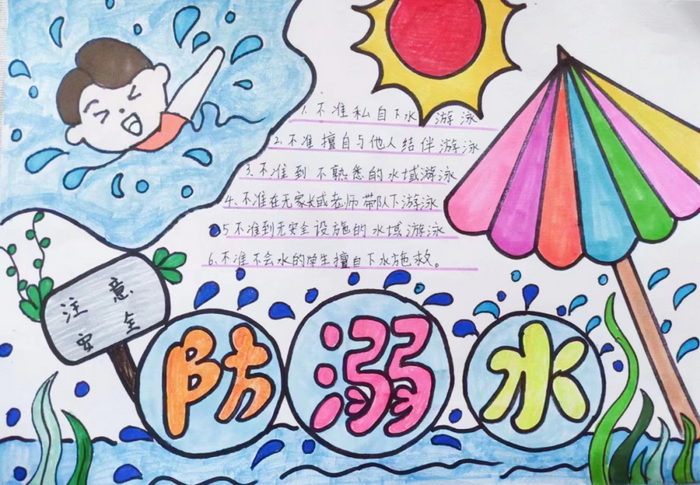 1.不准私自下水游泳
2.不准擅自与他人结伴游泳
3.不准到不熟悉的水域游泳
4.不准在无家长或老师带队下游泳
5不准到无安全设施的水域游泳
6.不准不会水的学生擅自下水施救。
注意
安全
防溺水